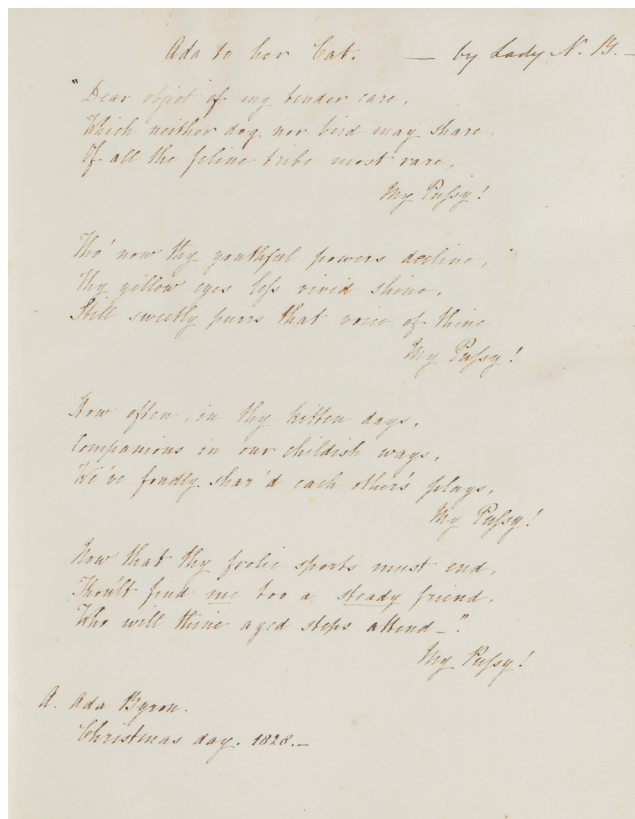 Ada to her Cat. — by Lady N. B. —
"Dear object of my tender care,
Which neither dog nor bird may share,
Of all the feline tribe most rare,
My Pussy!
Tho' now thy youthful powers decline,
Thy yellow eyes less vivid shine,
Still sweetly purrs that voice of thine
My Pussy!
How often, in thy kitten days,
Companions in our childish ways,
We've fondly shar'd each other's plays,
My Pussy!
Now that thy frolic sports must end,
Thou'lt find me too a steady friend,
Who will thine aged steps attend—"
My Pussy!
A. Ada Byron.
Christmas day. 1828.—